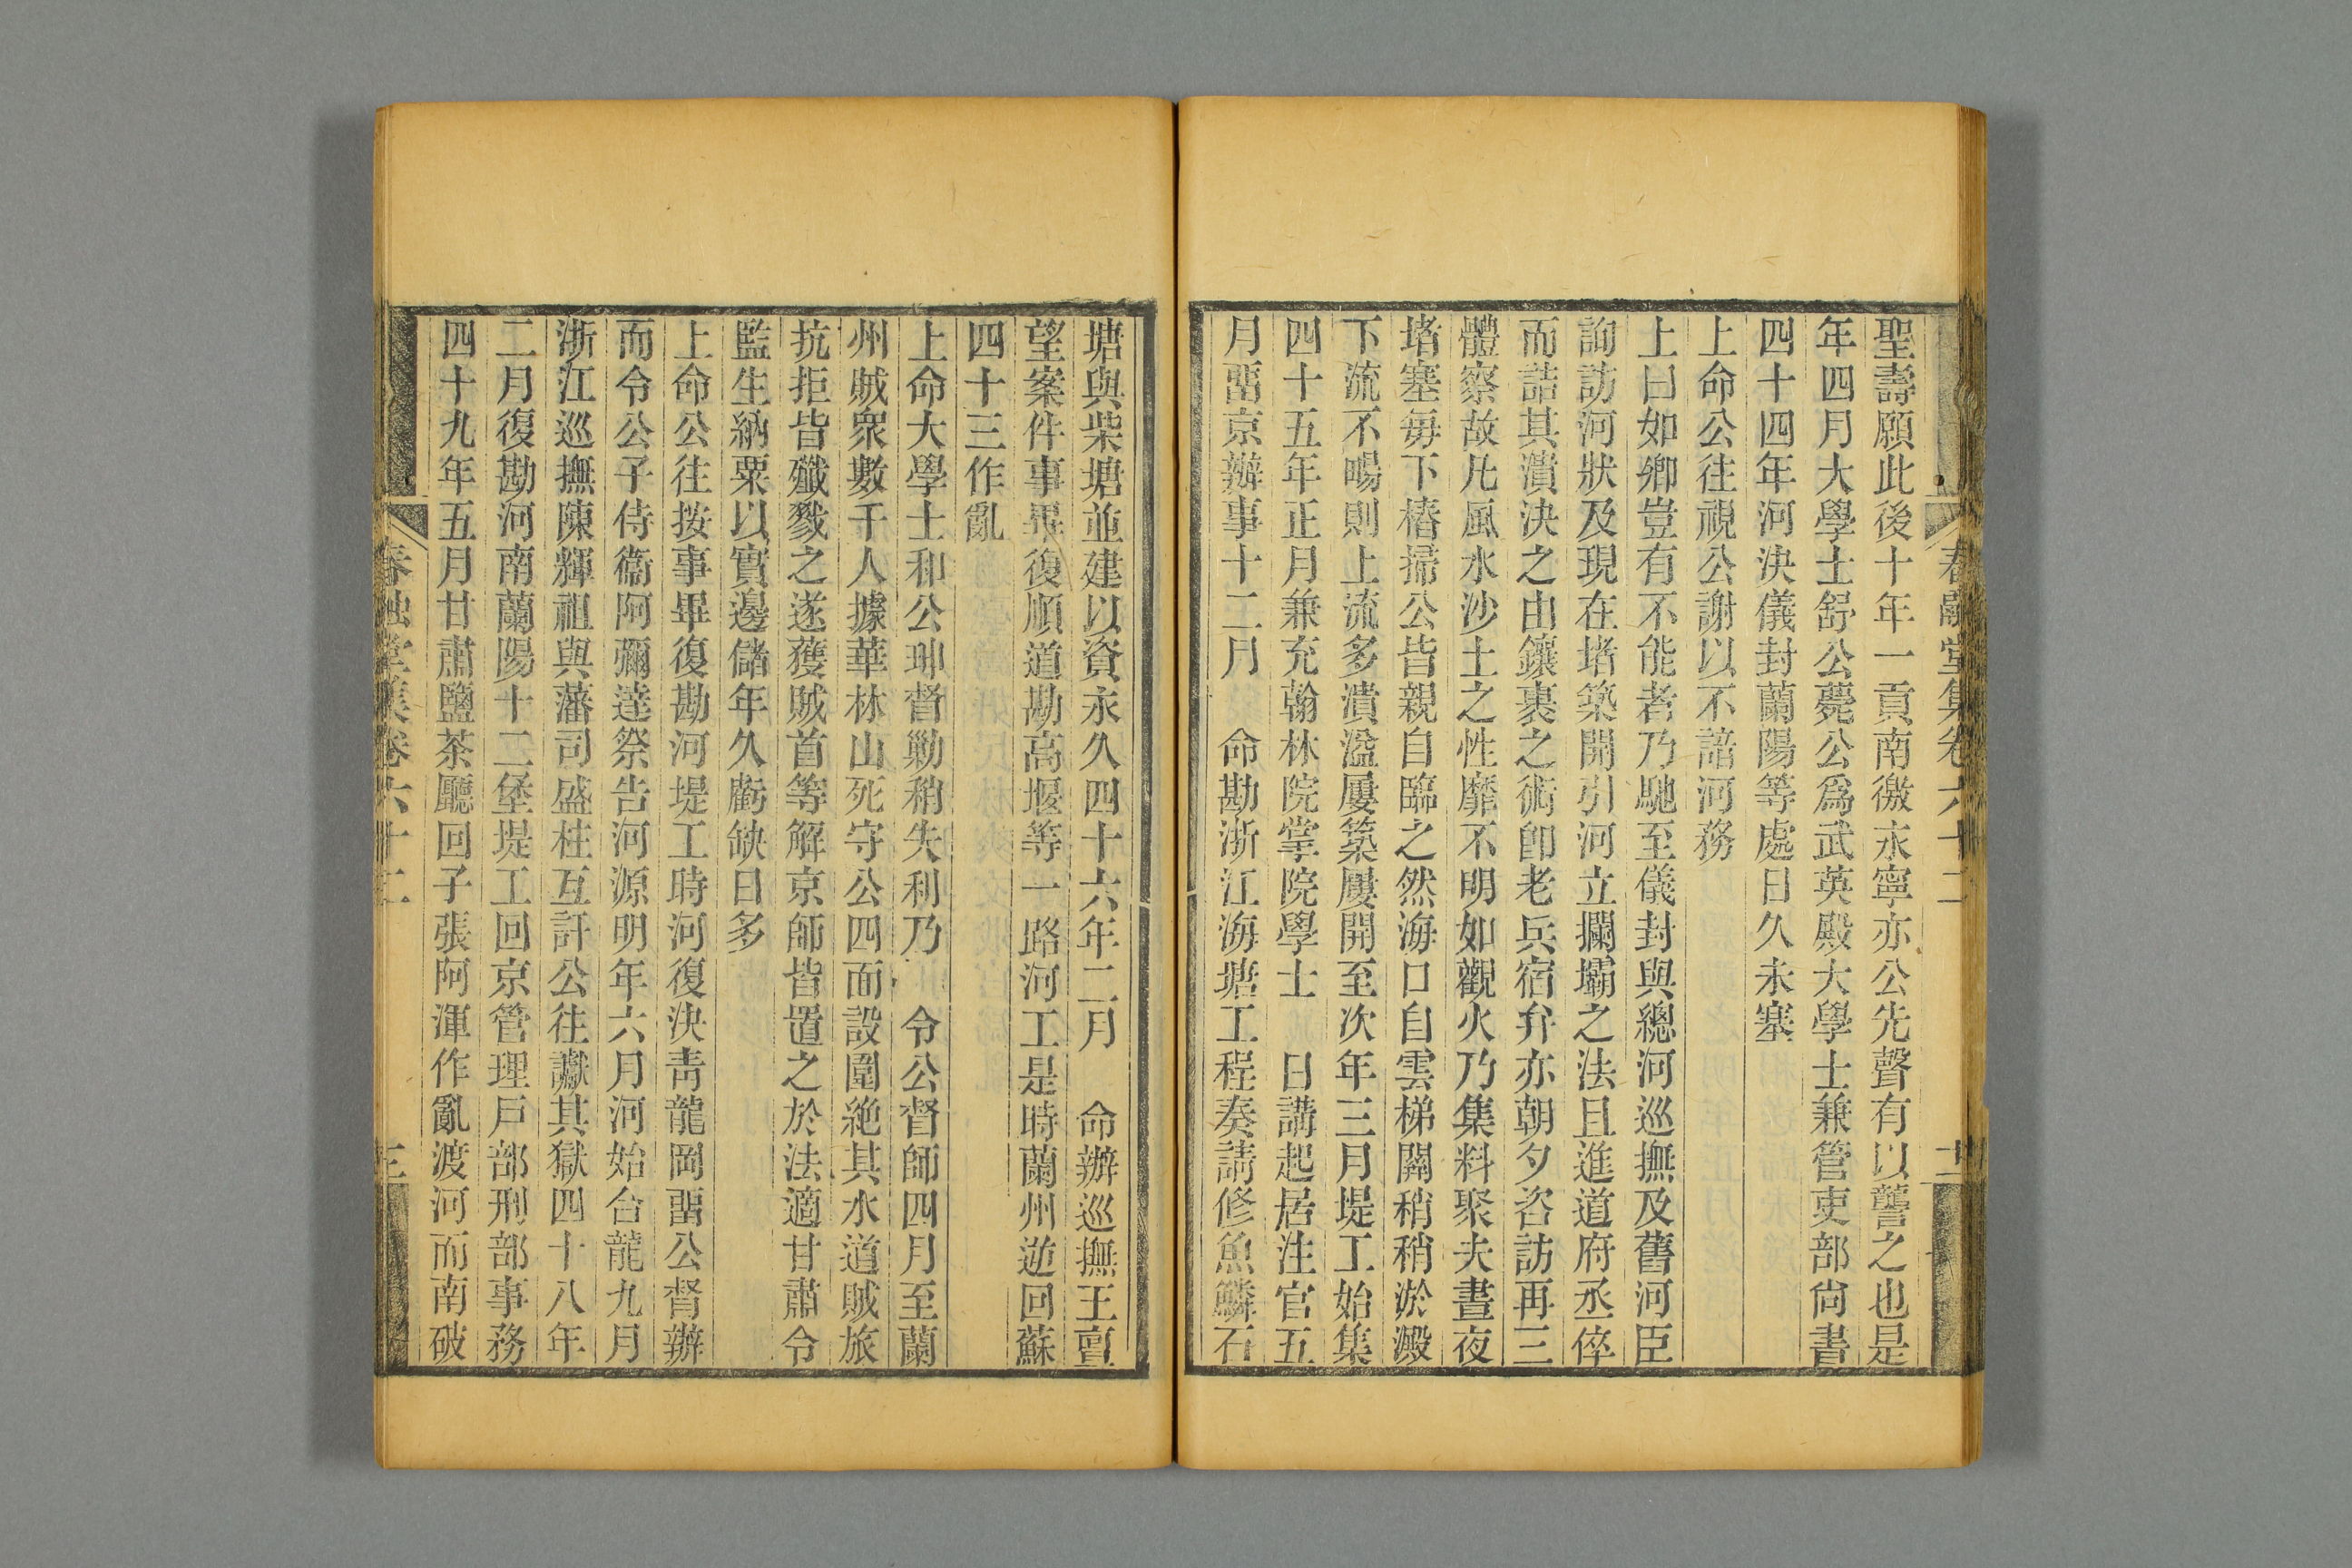 聖壽願此後十年一貢南徼永寧亦公先聲有以讋之也是
年四月大學士舒公薨公爲武英殿大學士兼管吏部尙書
四十四年河決儀封蘭陽等處日久未塞
上命公往視公謝以不諳河務
上曰如卿豈有不能者乃馳至儀封與總河巡撫及舊河臣
詢訪河狀及現在堵築開引河立攔壩之法且進道府丞倅
而詰其潰決之由鑲裹之術卽老兵宿弁亦朝夕咨訪再三
體察故凡風水沙土之性靡不明如觀火乃集料聚夫晝夜
堵塞每下樁掃公皆親自臨之然海口自雲梯關稍稍淤澱
下流不暢則上流多潰溢屢築屢開至次年三月堤工始集
四十五年正月兼充翰林院掌院學士 日講起居注官五
月畱京辦事十二月 命勘浙江海塘工程奏請修魚鱗石
春融堂集卷六十二 二
塘與柴塘並建以資永久四十六年二月 命辦巡撫王亶
望案件事畢復順道勘高堰等一路河工是時蘭州逆回蘇
四十三作亂
上命大學士和公珅督勦稍失利乃 令公督師四月至蘭
州賊衆數千人據華林山死守公四面設圍絶其水道賊旅
抗拒皆殲戮之遂獲賊首等解京師皆置之於法適甘肅令
監生納粟以實邊儲年久虧缺日多
上命公往按事畢復勘河堤工時河復決靑龍岡畱公督辦
而令公子侍衞阿彌達祭告河源明年六月河始合龍九月
浙江巡撫陳輝祖與藩司盛柱互訐公往讞其獄四十八年
二月復勘河南蘭陽十二堡堤工回京管理戶部刑部事務
四十九年五月甘肅鹽茶廳回子張阿渾作亂渡河而南破
春融堂集卷六十二 三